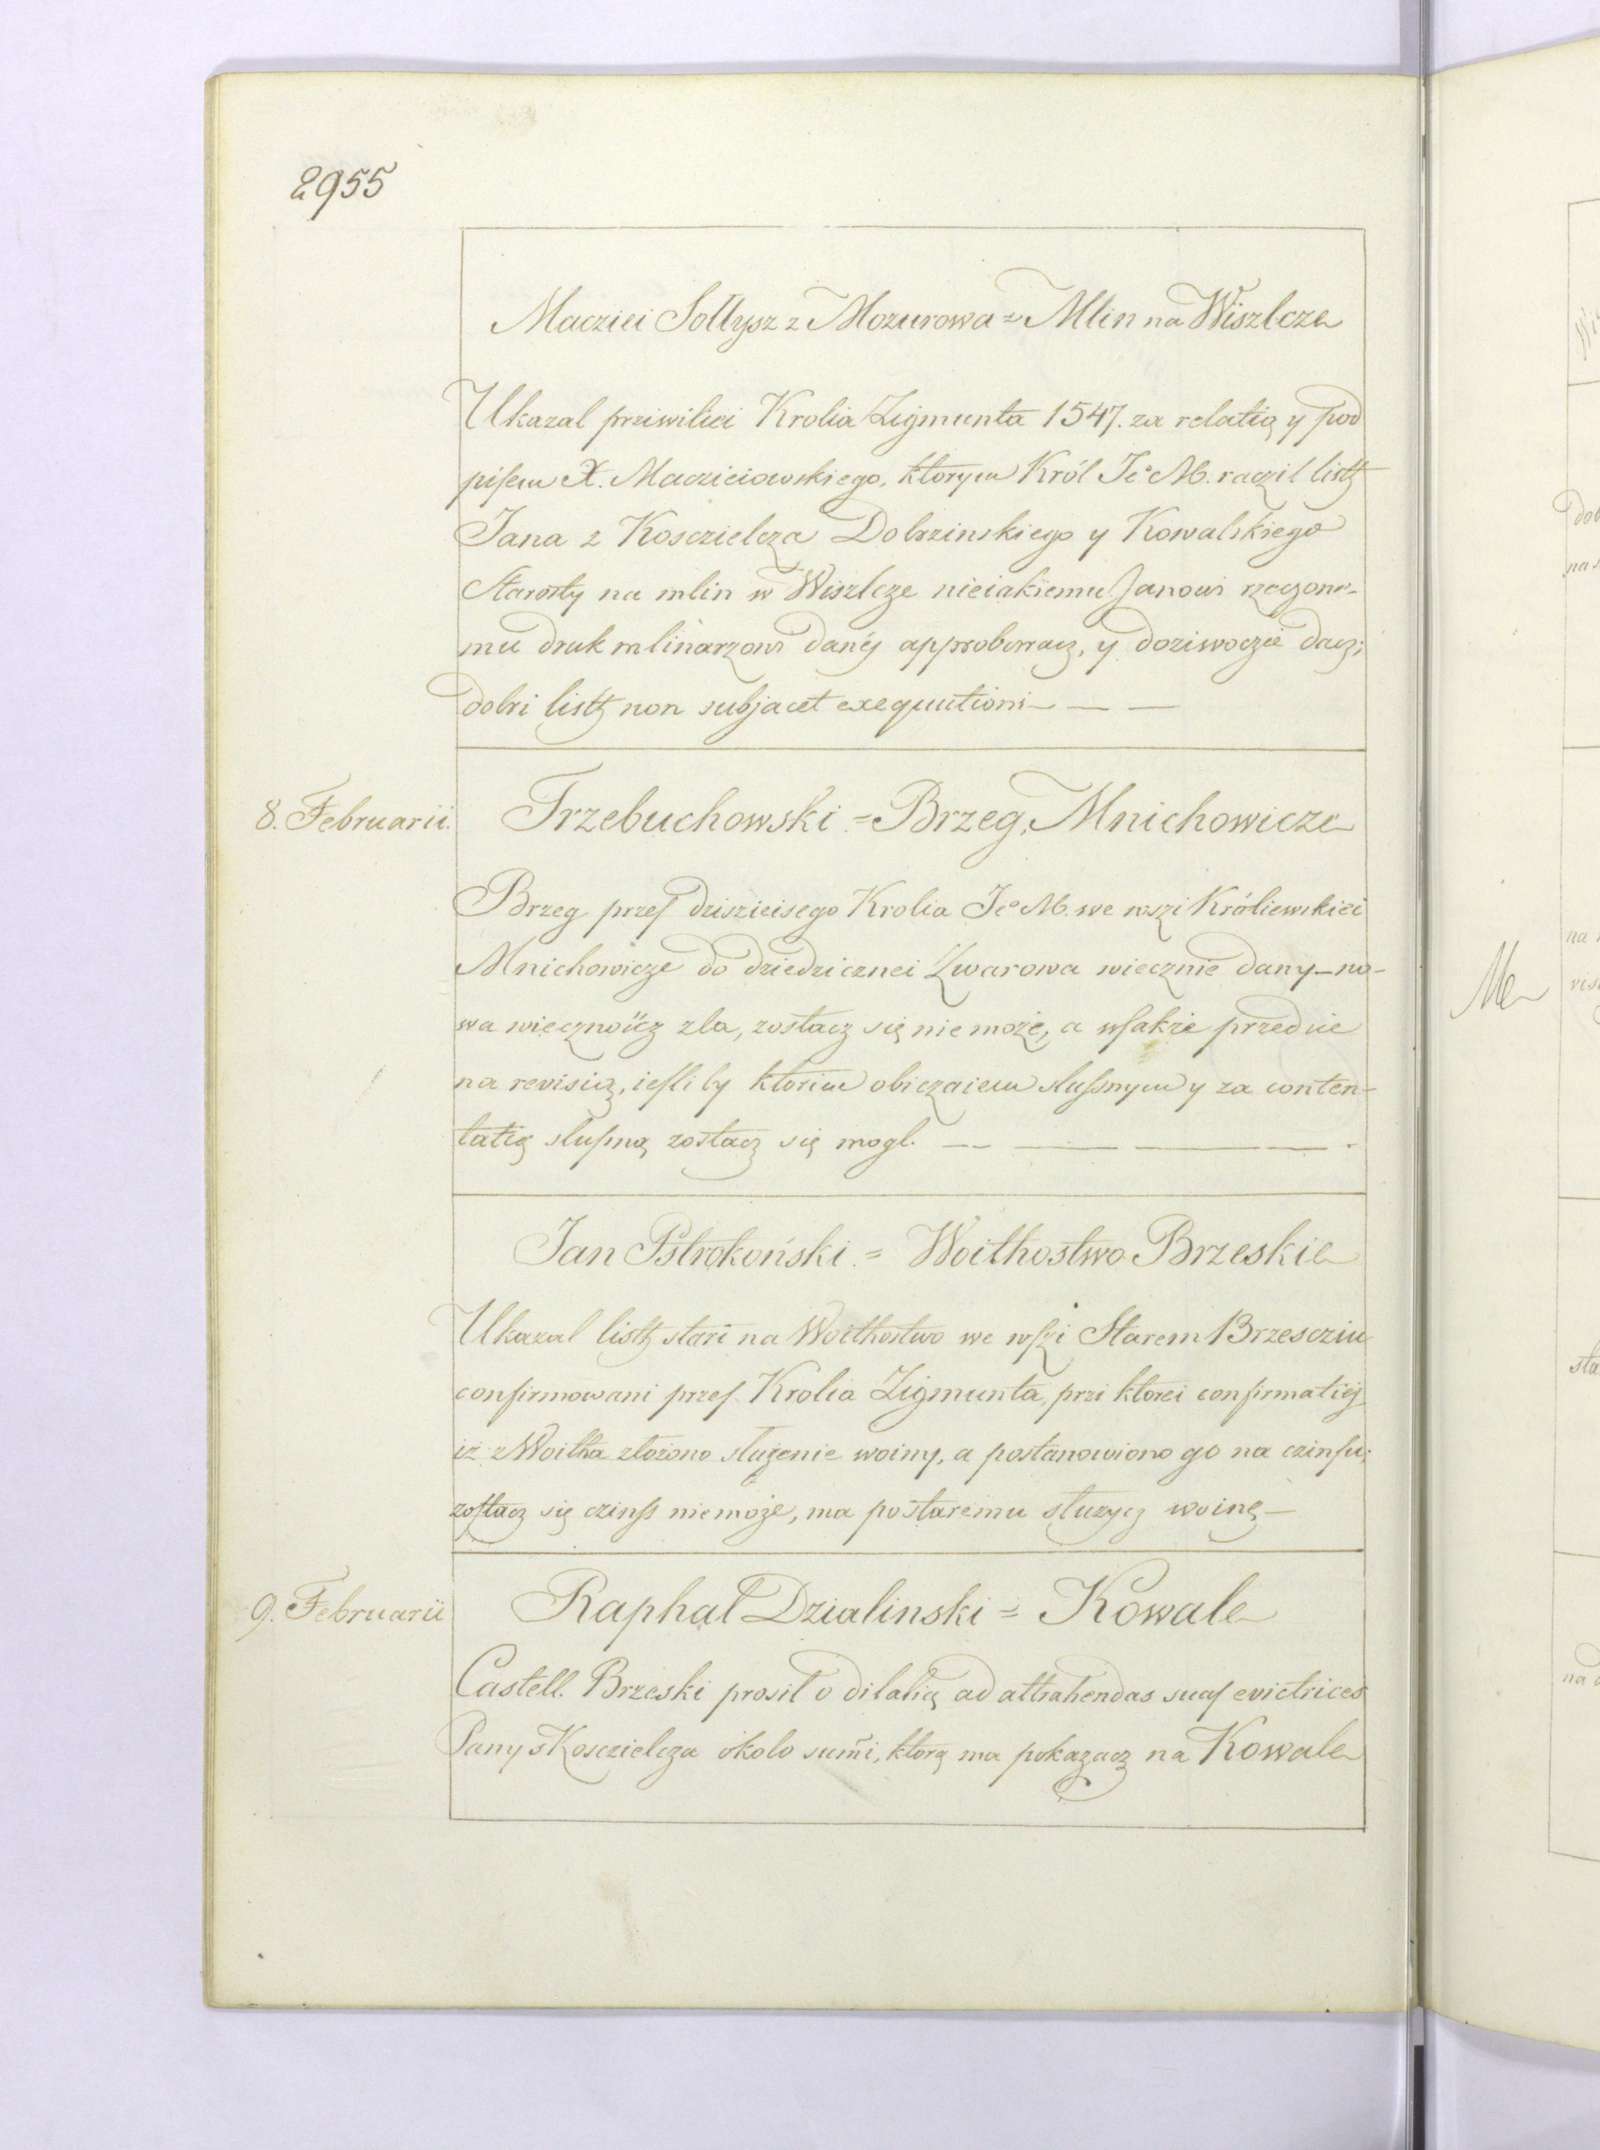 2955
Macziei Sołtysz z Mozurowa = Mlin na Wiszlcze
Ukazal prziwiliei Krolia Zigmunta 1547. za relatią y pod
pisem X. Macziciowskiego, ktorym Król Je° M. raczil listÿ
Jana z Kosczielcza Dobrzinskiego y Kowalskiego
Starosty na mlin w Wiszlcze nieiakiemu Janowi rzeczone-
mu druk mlinarzowi danÿ approbowacz, y doziwoczie dacz;
dobri listÿ non subjacet exequutioni — — —
8. Februarii.
Trzebuchowski = Brzeg, Mnichowicze
Brzeg przes dziszieisego Krolia Je° M. we wszi Króliewskiei
Mnichowicze do dziedzicznei Zwarowa wiecznie dany — no-
wa wiecznoscz zla, zostacz się nie może, a wsakże przed nie
na revisią, iesli by ktorim obiczaiem slussnym y za conten-
tatią slusną zostacz się mogl. — — — —
Jan Pstrokoński = Woithostwo Brzeskie
Ukazal listÿ stari na Woithostwo we wszi Starem Brzescziu
confirmowani przes Krolia Zigmunta, przi ktorei confirmatiÿ
iż z Woitha złożono służenie woiny, a postanowiono go na czinsu;
zostacz się czinss niemoże, ma postaremu służycz woinę —
9. Februarii
Raphał Dzialinski = Kowale
Castell. Brzeski prosił o dilatią ad attrahendas suas evictrices
Pany z Kosczielcza około sum̃i, ktorą ma pokazacz na Kowale
Me
dob
na